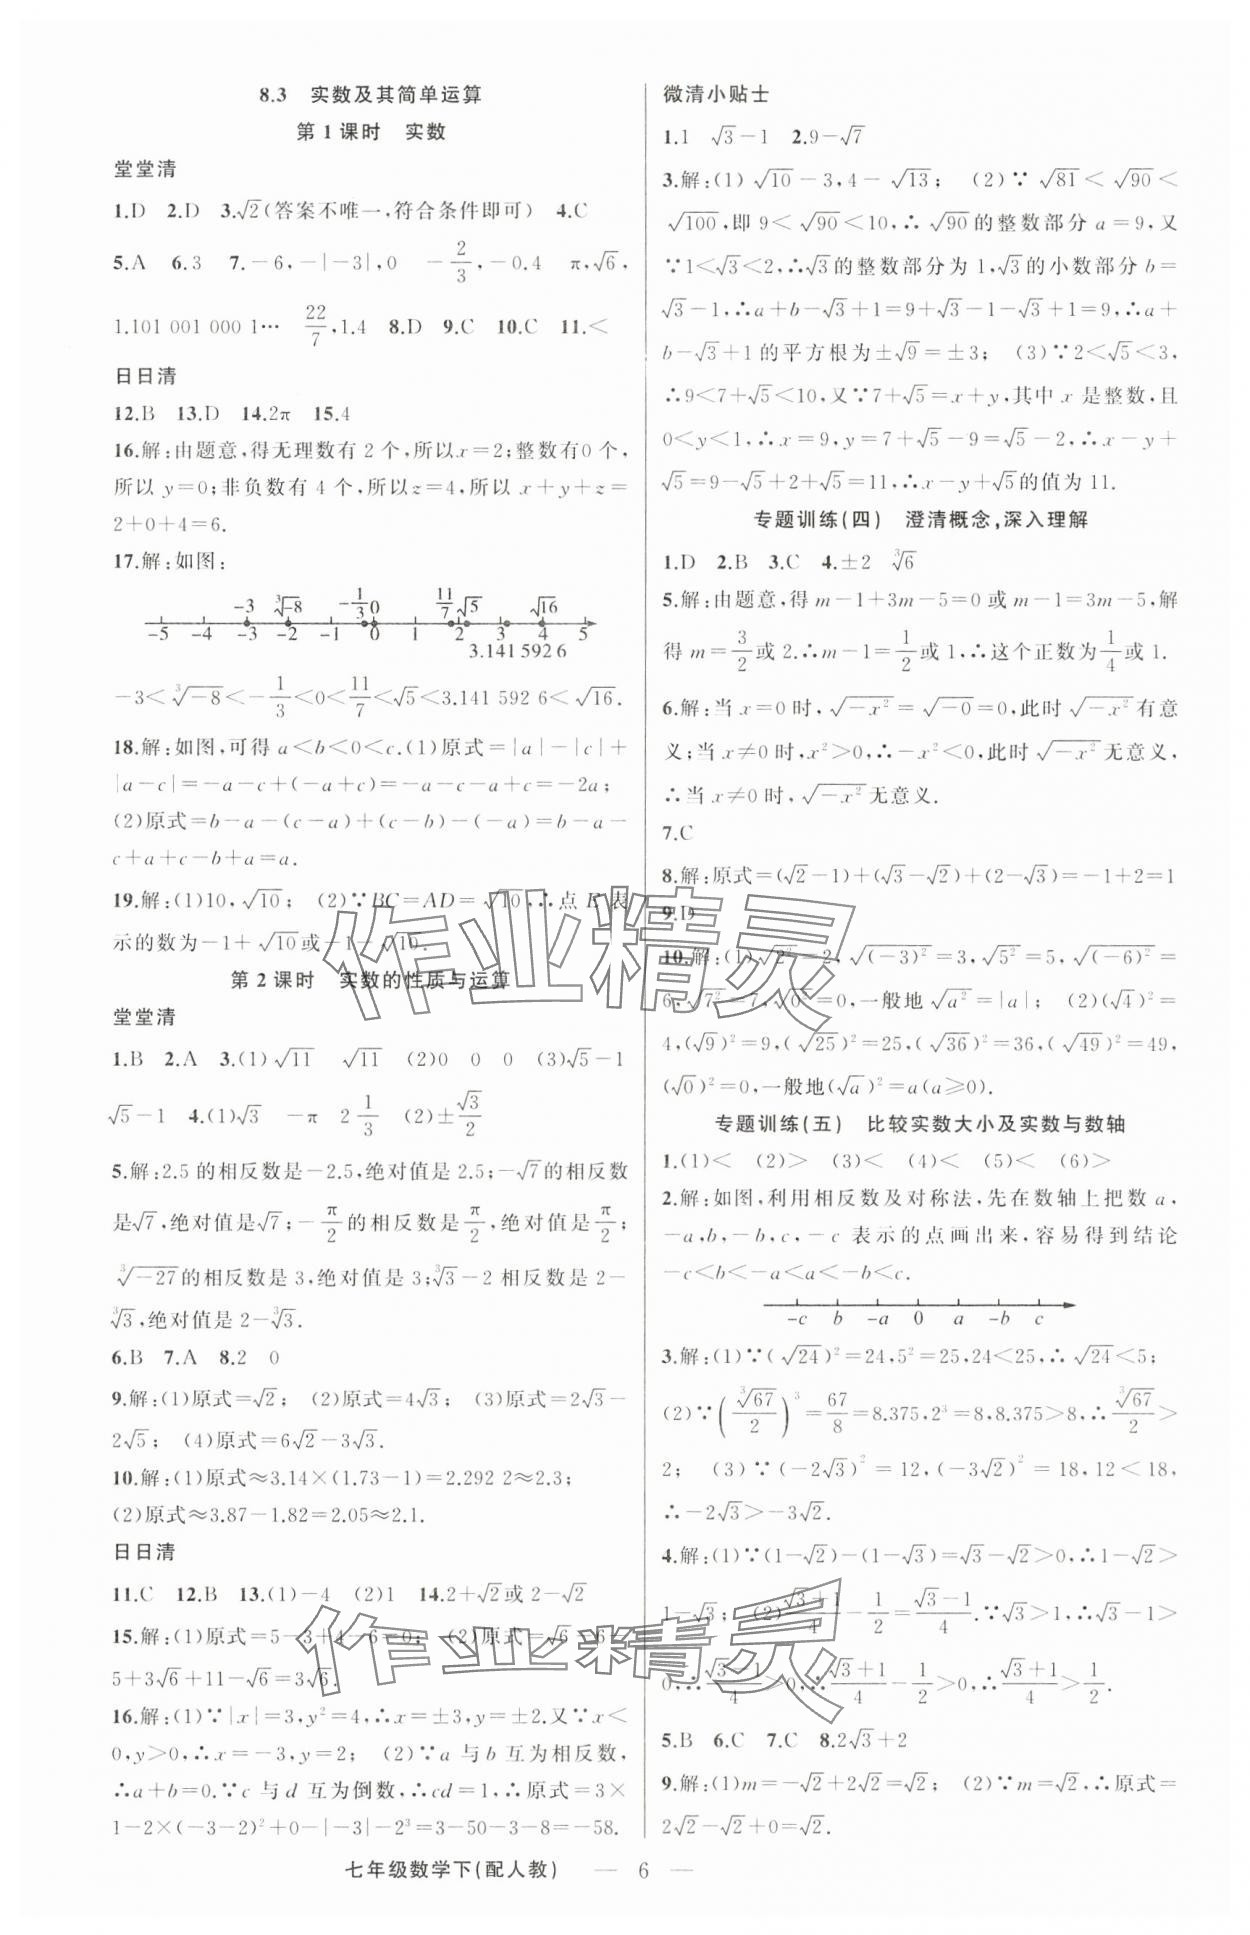 8.3 实数及其简单运算
第1课时 实数
堂堂清
1.D 2.D 3.√2(答案不唯一,符合条件即可) 4.C
5.A 6.3 7.-6,-|-3|,0 -2/3,-0.4 π,√6,
1.101 001 000 1… 22/7,1.4 8.D 9.C 10.C 11.<
日日清
12.B 13.D 14.2π 15.4
16.解:由题意,得无理数有2个,所以x=2;整数有0个,
所以y=0;非负数有4个,所以z=4,所以x+y+z=
2+0+4=6.
17.解:如图:
-3 ³√-8 -1/3 0 11/7 √5 √16
-5 -4 -3 -2 -1 0 1 2 3 4 5
3.141 592 6
-3<³√-8<-1/3<0<11/7<√5<3.141 592 6<√16.
18.解:如图,可得a<b<0<c.(1)原式=|a|-|c|+
|a-c|=-a-c+(-a+c)=-a-c-a+c=-2a;
(2)原式=b-a-(c-a)+(c-b)-(-a)=b-a-
c+a+c-b+a=a.
19.解:(1)10,√10; (2)∵BC=AD=√10,∴点E表
示的数为-1+√10或-1-√10.
第2课时 实数的性质与运算
堂堂清
1.B 2.A 3.(1)√11 √11 (2)0 0 0 (3)√5-1
√5-1 4.(1)√3 -π 2 1/3 (2)±√3/2
5.解:2.5的相反数是-2.5,绝对值是2.5;-√7的相反数
是√7,绝对值是√7;-π/2的相反数是π/2,绝对值是π/2;
³√-27的相反数是3,绝对值是3;³√3-2相反数是2-
³√3,绝对值是2-³√3.
6.B 7.A 8.2 0
9.解:(1)原式=√2; (2)原式=4√3; (3)原式=2√3-
2√5; (4)原式=6√2-3√3.
10.解:(1)原式≈3.14×(1.73-1)=2.292 2≈2.3;
(2)原式≈3.87-1.82=2.05≈2.1.
日日清
11.C 12.B 13.(1)-4 (2)1 14.2+√2或2-√2
15.解:(1)原式=5-3+4-6=0; (2)原式=√6-6-
5+3√6+11-√6=3√6.
16.解:(1)∵|x|=3,y²=4,∴x=±3,y=±2.又∵x<
0,y>0,∴x=-3,y=2; (2)∵a与b互为相反数,
∴a+b=0.∵c与d互为倒数,∴cd=1,∴原式=3×
1-2×(-3-2)²+0-|-3|-2³=3-50-3-8=-58.
微清小贴士
1.1 √3-1 2.9-√7
3.解:(1)√10-3,4-√13; (2)∵√81<√90<
√100,即9<√90<10,∴√90的整数部分a=9,又
∵1<√3<2,∴√3的整数部分为1,√3的小数部分b=
√3-1,∴a+b-√3+1=9+√3-1-√3+1=9,∴a+
b-√3+1的平方根为±√9=±3; (3)∵2<√5<3,
∴9<7+√5<10,又∵7+√5=x+y,其中x是整数,且
0<y<1,∴x=9,y=7+√5-9=√5-2,∴x-y+
√5=9-√5+2+√5=11,∴x-y+√5的值为11.
专题训练(四) 澄清概念,深入理解
1.D 2.B 3.C 4.±2 ³√6
5.解:由题意,得m-1+3m-5=0或m-1=3m-5,解
得m=3/2或2.∴m-1=1/2或1,∴这个正数为1/4或1.
6.解:当x=0时,√-x²=√-0=0,此时√-x²有意
义;当x≠0时,x²>0,∴-x²<0,此时√-x²无意义,
∴当x≠0时,√-x²无意义.
7.C
8.解:原式=(√2-1)+(√3-√2)+(2-√3)=-1+2=1
9.D
10.解:(1)√2²=2,√(-3)²=3,√5²=5,√(-6)²=
6,√7²=7,√0²=0,一般地√a²=|a|; (2)(√4)²=
4,(√9)²=9,(√25)²=25,(√36)²=36,(√49)²=49,
(√0)²=0,一般地(√a)²=a(a≥0).
专题训练(五) 比较实数大小及实数与数轴
1.(1)< (2)> (3)< (4)< (5)< (6)>
2.解:如图,利用相反数及对称法,先在数轴上把数a,
-a,b,-b,c,-c表示的点画出来,容易得到结论
-c<b<-a<a<-b<c.
-c b -a 0 a -b c
3.解:(1)∵(√24)²=24,5²=25,24<25,∴√24<5;
(2)∵(³√67/2)³=67/8=8.375,2³=8,8.375>8,∴³√67/2>
2; (3)∵(-2√3)²=12,(-3√2)²=18,12<18,
∴-2√3>-3√2.
4.解:(1)∵(1-√2)-(1-√3)=√3-√2>0,∴1-√2>
1-√3; (2)(√3+1)/4-1/2=(√3-1)/4.∵√3>1,∴√3-1>
0,∴(√3-1)/4>0,∴(√3+1)/4-1/2>0,∴(√3+1)/4>1/2.
5.B 6.C 7.C 8.2√3+2
9.解:(1)m=-√2+2√2=√2; (2)∵m=√2,∴原式=
2√2-√2+0=√2.
七年级数学下(配人教) — 6 —
作业精灵
作业精灵